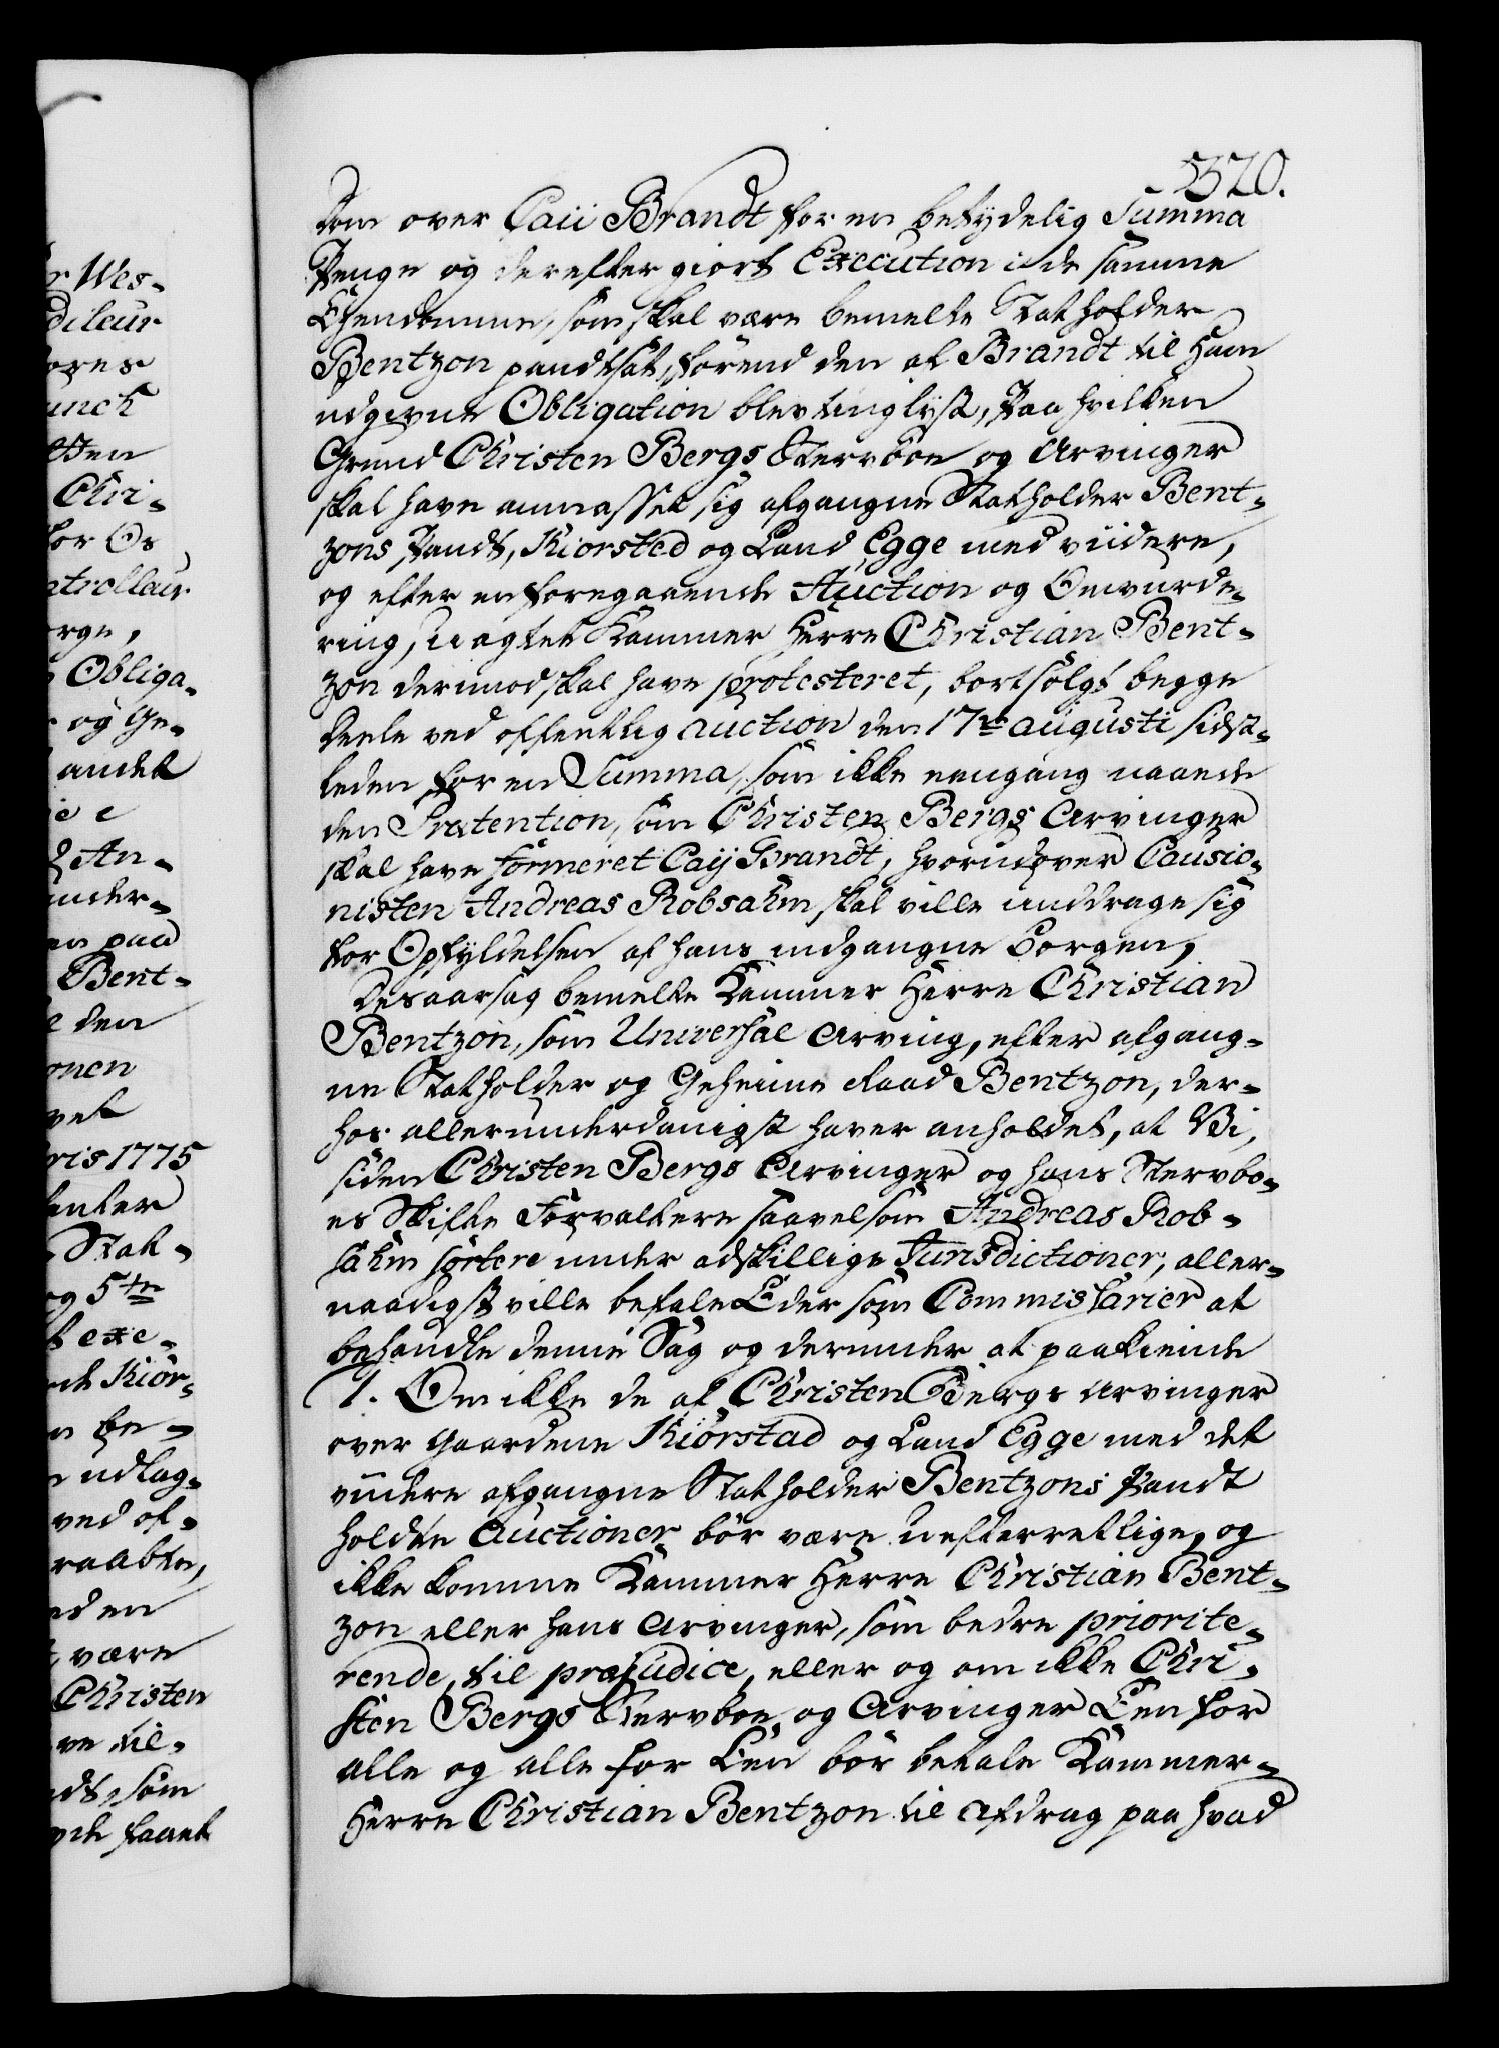 320.
Dom over Caii Brandt for en betydelig Summa
Penge og derefter giort Execution i de samme
Eyendomme, som skal være bemelte Statholder
Bentzon pandtsat, førend den af Brandt til ham
udgivne Obligation blev tinglyst, Paa hvilken
Grund Christen Bergs Stervboe og Arvinger
skal have anmasset sig afgangne Statholder Bent-
zons Pandt, Kiorsted og Land Egge med viidere,
og efter en foregaaende Auction og Omvurde-
ring, uagtet Kammer Herre Christian Bent-
zon derimod skal have protesteret, bortsolgt begge
Deele ved offentlig auction den 17de augusti sidst-
leden for en Summa, som ikke eengang naaede
den Prætention, som Christen Bergs Arvinger
skal have formeret Caij Brandt, hvorudover Causio-
nisten Andreas Robsahm skal ville unddrage sig
for Opfyldelsen af hans indgangne Borgen,
Desaarsag bemelte Kammer Herre Christian
Bentzon, som Universal Arving, efter afgang-
ne Statholder og Geheime Raad Bentzon, der-
hos allerunderdanigst haver anholdet, at Vi,
siden Christen Bergs Arvinger og hans Stervbo-
es Skifte Forvaltere saavelsom Andreas Rob-
sahm sortere under adskillige Jurisdictioner, aller-
naadigst ville befale Eder som Commissarier at
behandle denne Sag og derunder at paakiende
1. Om ikke de af Christen Bergs Arvinger
over Gaardene Kiørstad og Land Egge med det
viidere afgangne Statholder Bentzons Pandt
holdte Auctioner bør være uefterrettlige, og
ikke komme Kammer Herre Christian Bent-
zon eller hans Arvinger, som bedre priorite-
rende, til præjudice, eller og om ikke Chri-
sten Bergs Stervboe og Arvinger Een for
alle og alle for Een bør betale Kammer-
Herre Christian Bentzon til Afdrag paa hvad